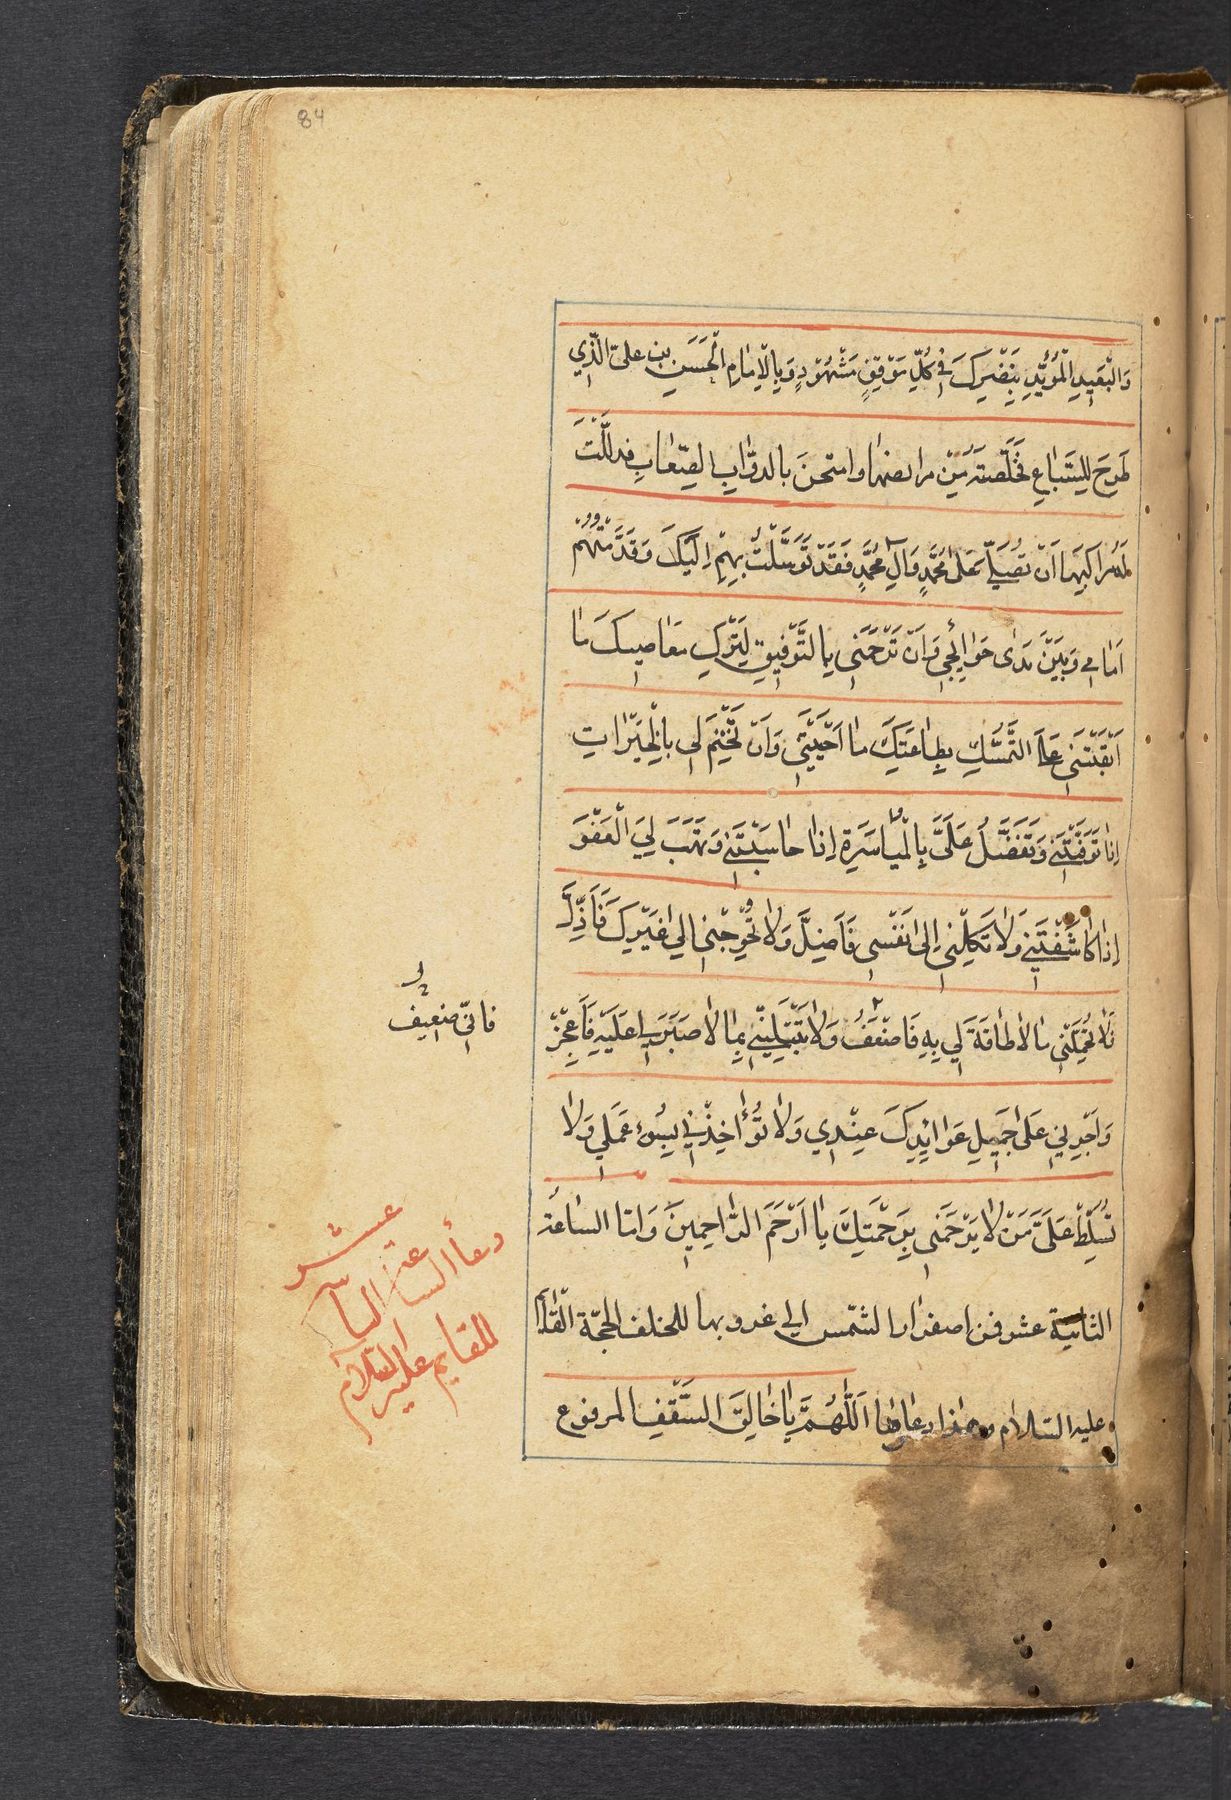 84
وَالْبَعِيدِ الْمُؤَيَّدِ بِنَصْرِكَ فِي كُلِّ مَوْقِفٍ مَشْهُودٍ وَبِالْإِمَامِ الْحَسَنِ بنِ عليّ الَّذِي
طُرِحَ لِلسِّبَاعِ فَخَلَّصْتَهُ مِنْ مرابضها وامتحن بالدوّاب الصِّعَابِ فذلَّلْتَ
لَهُ مراكبها اَنْ تُصَلِّيَ عَلى مُحَمَّدٍ وَآلِ مُحَمَّدٍ فَقَدْ تَوَسَّلْتُ بِهِمْ اِلَيْكَ وَقَدَّمْتُهُمْ
اَمَامِي وَبَيْنَ يَدَى حَوَائِجِي وَاَنْ تَرْحَمَنِي بِالتَّوْفِيقِ لِتَرْكِ مَعَاصِيكَ مَا
اَبْقَيْتَنِي عَلَى التَّمَسُّكِ بِطَاعَتِكَ مَا اَحْيَيْتَنِي وَاَنْ تَخْتِمَ لِي بِالْخَيْرَاتِ
اِذَا تَوَفَّيْتَنِي وَتَفَضَّلَ عَلَيَّ بِالْمُيَاسَرَةِ اِذَا حَاسَبْتَنِي وَتَهَبَ لِيَ الْعَفْوَ
اِذَا كَاشَفْتَنِي وَلَا تَكِلْنِي اِلَى نَفْسِي فَاَضِلَّ وَلَا تُحْوِجْنِي اِلَى غَيْرِكَ فَاَذِلَّ
فَلَا تُحَمِّلْنِي مَا لَا طَاقَةَ لِي بِهِ فَاَضْعَفُ وَلَا تَبْتَلِيَنِّي بِمَا لَا صَبْرَ لِي عَلَيْهِ فَاَعْجِزْ
فَانّي ضعيف
وَاَجْرِنِي عَلَى جَمِيلِ عَوَائِدِكَ عِنْدِي وَلَا تُؤَاخِذْنِي بِسُوءِ عَمَلِي وَلَا
تُسَلِّطْ عَلَيَّ مَنْ لَا يَرْحَمُنِي بِرَحْمَتِكَ يَا اَرْحَمَ الرَّاحِمِينَ وَامّا الساعة
الثانية عشر فمن اصفرار الشمس الى غروبها للخلف الحجّة القائم
عليه السلام وهذا دعاؤها اَللّهُمَّ يَا خَالِقَ السَّقْفِ المرفوع
دعاء الساعة
عشر
للقايم عليه السلام